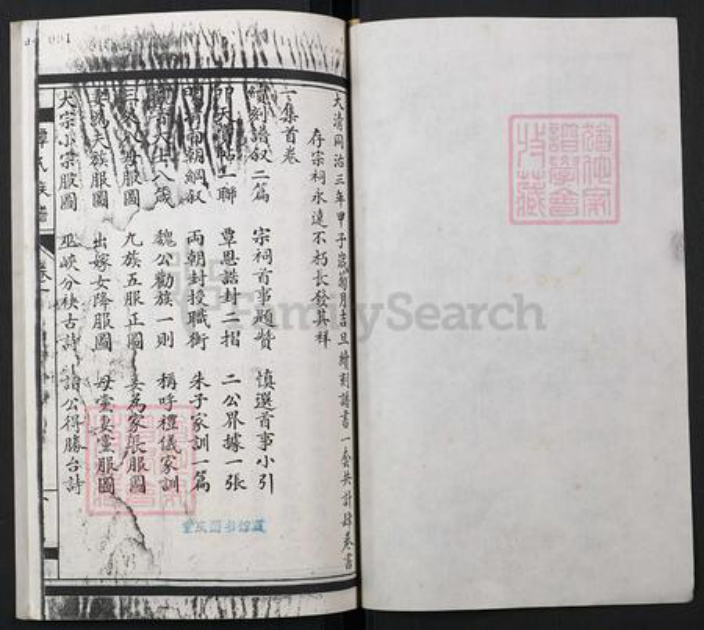 大清同治三年甲子歲菊月吉旦續刻譜書一套共計肆卷書
存宗祠永遠不朽長發其祥
一集首卷
續刻譜叙二篇 宗祠首事題贊 慎選首事小引
一聯 覃恩誥封二摺 二公界據一張
朝綱叙 兩朝封授職銜 朱子家訓一篇
八歲 魏公勸族一則 稱呼禮儀家訓
三父八母服圖 九族五服正圖 妾為家長服圖
妻為夫族服圖 出嫁女降服圖 服圖
大宗小宗服圖 巫峽分袂古詩 公得勝台詩
氏族譜
卷一
重慶図书館藏
FamilySearch
譜學會